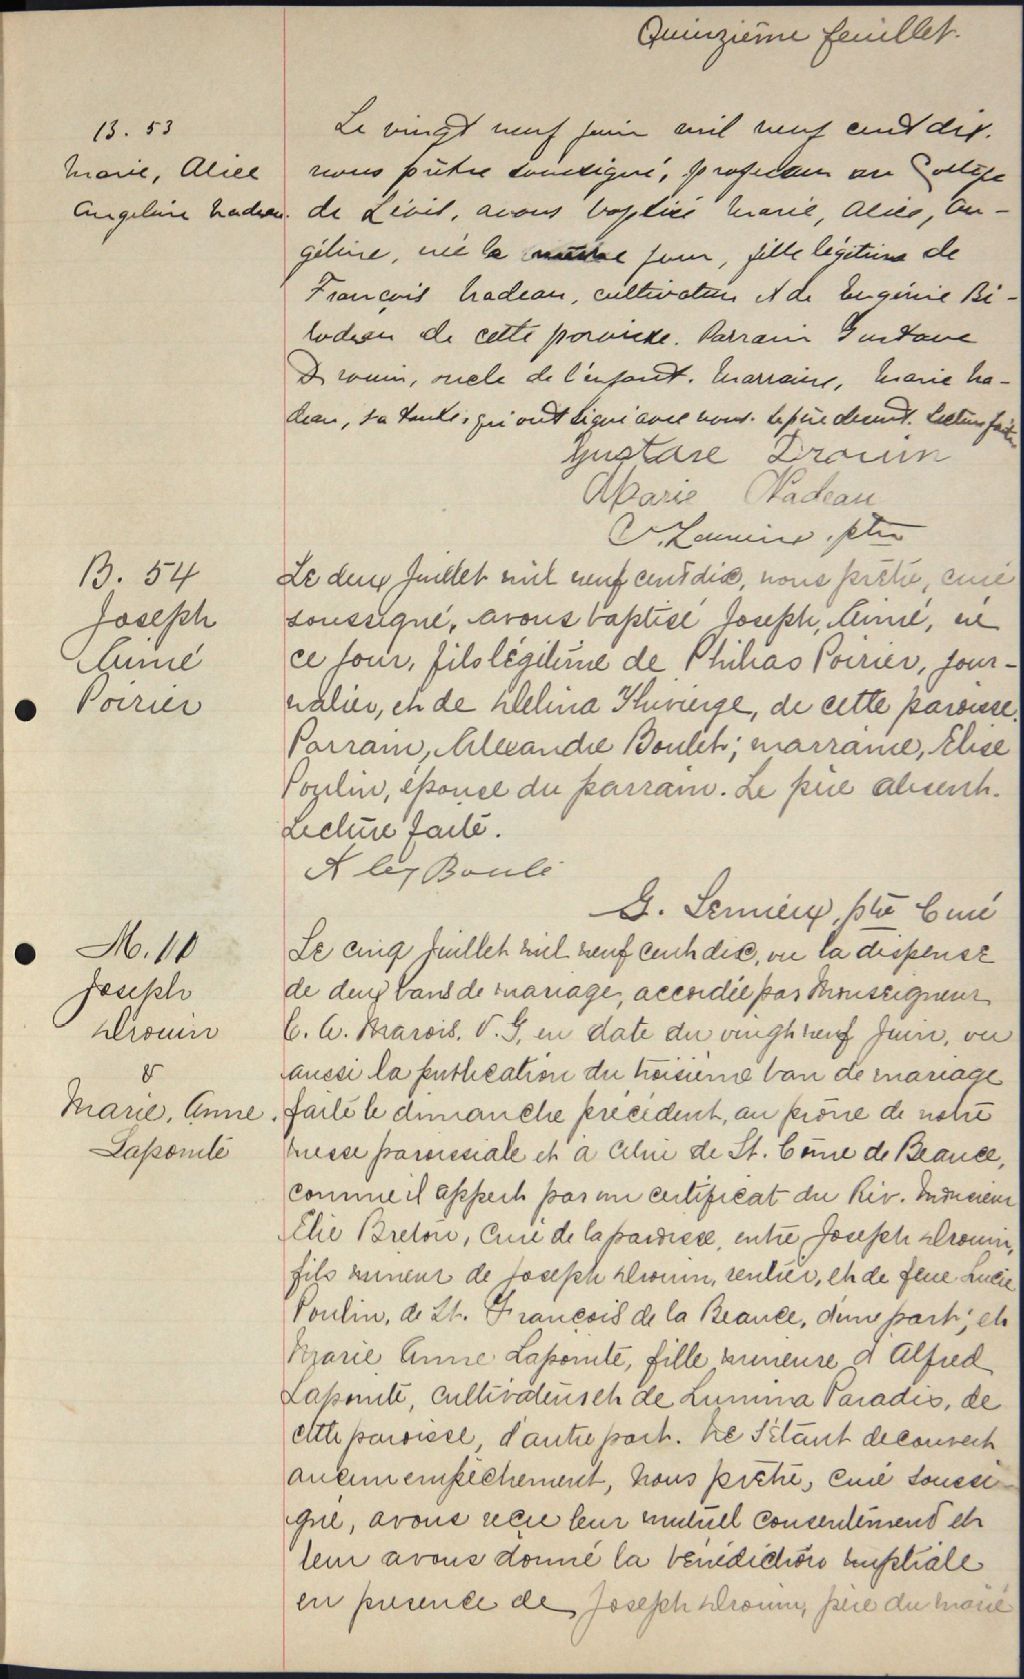 Quinzième feuillet.
B. 53
Marie, Alice
Angeline Nadeau.
Le vingt neuf juin mil neuf cent dix.
nous prêtre soussigné, professeur au Collège
de Lévis, avons baptisé Marie, Alice, An-
géline, née le même jour, fille légitime de
François Nadeau, cultivateur et de Eugénie Bi-
lodeau de cette paroisse. Parrain Gustave
Drouin, oncle de l'enfant. Marraine, Marie Na-
deau, sa tante, qui ont signé avec nous. le père absent. Lecture faite
Gustave Drouin
Marie Nadeau
ptre
B. 54
Joseph
Aimé
Poirier
Le deux Juillet mil neuf cent dix, nous prêtre, curé
soussigné, avons baptisé Joseph, Aimé, né
ce jour, fils légitime de Philias Poirier, jour-
nalier, et de Délina Thivierge, de cette paroisse.
Parrain, Alexandre Boulet; marraine, Elise
Poulin, épouse du parrain. Le père absent.
Lecture faite.
Alex Boulé
G. Lemieux, ptre Curé
M. 10
Joseph
Drouin
&
Marie, Anne.
Lapointe
Le cinq Juillet mil neuf cent dix, vu la dispense
de deux bans de mariage, accordée par Monseigneur
C. A. Marois. V. G, en date du vingt neuf Juin, vu
aussi la publication du troisième ban de mariage
faite le dimanche précédent, au prône de notre
messe paroissiale et à celui de St. Côme de Beauce,
comme il appert par un certificat du Rév. Monsieur
Elie Breton, curé de la paroisse, entre Joseph Drouin,
fils mineur de Joseph Drouin, rentier, et de feue Lucie
Poulin, de St. François de la Beauce, d'une part; et
Marie Anne Lapointe, fille mineure d'Alfred
Lapointe, cultivateur et de Lumina Paradis, de
cette paroisse, d'autre part. Ne s'étant découvert
aucun empêchement, nous prêtre, curé soussi-
gné, avons reçu leur mutuel consentement et
leur avons donné la bénédiction nuptiale
en présence de Joseph Drouin, père du marié